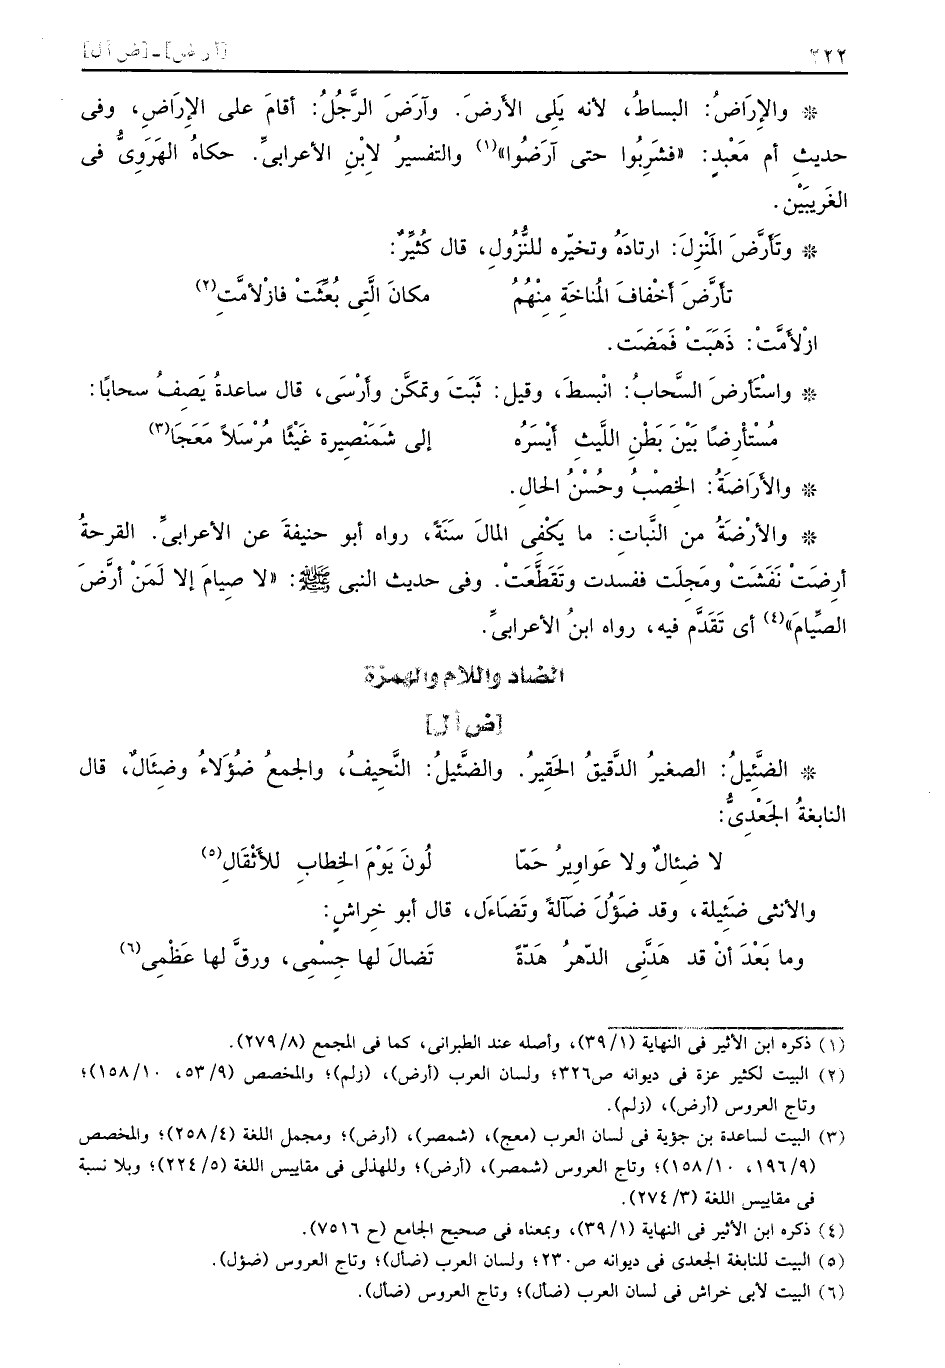 ٢٢٢ [أ ر ض] ـ [ض أ ل]
* والإِرَاضُ: البساطُ، لأنه يَلِى الأَرضَ. وآرَضَ الرَّجُلُ: أقامَ على الإِرَاضِ، وفى
حديثِ أم مَعْبدٍ: «فشَرِبُوا حتى آرَضُوا»(١) والتفسيرُ لابْنِ الأعرابىِّ. حكاهُ الهَرَوِىُّ فى
الغَرِيبَيْن.
* وتَأَرَّضَ المَنْزِلَ: ارتادَهُ وتخيّره للنُّزُولِ، قال كُثَيِّرٌ:
تأَرَّضَ أخْفافَ المُناخَةِ مِنْهُمُ مكانَ الَّتِى بُعِّثَتْ فازْلأمَّتِ(٢)
ازْلأَمَّتْ: ذَهَبَتْ فَمَضَت.
* واسْتَأرضَ السَّحابُ: انْبسطَ، وقيل: ثَبَتَ وتمكَّن وأرْسَى، قال ساعدةُ يَصِفُ سحابًا:
مُسْتَأْرِضًا بَيْنَ بَطْنِ اللَّيثِ أيْسَرُه إلى شَمَنْصِيرة غَيْثًا مُرْسَلاً مَعَجَا(٣)
* والأَرَاضَةُ: الخصْبُ وحُسْنُ الحالِ.
* والأرْضَةُ من النَّباتِ: ما يَكْفِى المالَ سَنَةً، رواه أبو حنيفةَ عن الأعرابىِّ. القرحةُ
أرِضَتْ نَفَشَتْ ومَجِلَت ففسدت وتَقَطَّعَتْ. وفى حديث النبى ﷺ: «لا صيامَ إلا لَمَنْ أرَّضَ
الصِّيامَ»(٤) أى تَقَدَّم فيه، رواه ابنُ الأعرابىِّ.
الضاد واللام والهمزة
[ض أ ل]
* الضَّئِيلُ: الصغيرُ الدَّقيقُ الحَقِيرُ. والضَّئيلُ: النَّحِيفُ، والجمعُ ضُؤَلاءُ وضِئَالٌ، قال
النابغةُ الجَعْدِىُّ:
لا ضِئالٌ ولا عَواوِيرُ حَمّا لُونَ يَوْمَ الخِطابِ للأَثْقَالِ(٥)
والأنثى ضَئِيلة، وقد ضَؤُلَ ضَآلةً وتَضَاءَل، قال أبو خِراشٍ:
وما بَعْدَ أنْ قد هَدَّنِى الدّهرُ هَدّةً تَضالَ لها جِسْمِى، ورقَّ لها عَظْمِى(٦)
(١) ذكره ابن الأثير فى النهاية (٣٩/١)، وأصله عند الطبرانى، كما فى المجمع (٢٧٩/٨).
(٢) البيت لكثير عزة فى ديوانه ص٣٢٦؛ ولسان العرب (أرض)، (زلم)؛ والمخصص (٥٣/٩، ١٥٨/١٠)؛
وتاج العروس (أرض)، (زلم).
(٣) البيت لساعدة بن جؤية فى لسان العرب (معج)، (شمصر)، (أرض)؛ ومجمل اللغة (٢٥٨/٤)؛ والمخصص
(١٩٦/٩، ١٥٨/١٠)؛ وتاج العروس (شمصر)، (أرض)؛ وللهذلى فى مقاييس اللغة (٢٢٤/٥)؛ وبلا نسبة
فى مقاييس اللغة (٢٧٤/٣).
(٤) ذكره ابن الأثير فى النهاية (٣٩/١)، وبمعناه فى صحيح الجامع (ح ٧٥١٦).
(٥) البيت للنابغة الجعدى فى ديوانه ص٢٣٠؛ ولسان العرب (ضأل)؛ وتاج العروس (ضؤل).
(٦) البيت لأبى خراش فى لسان العرب (ضأل)؛ وتاج العروس (ضأل).